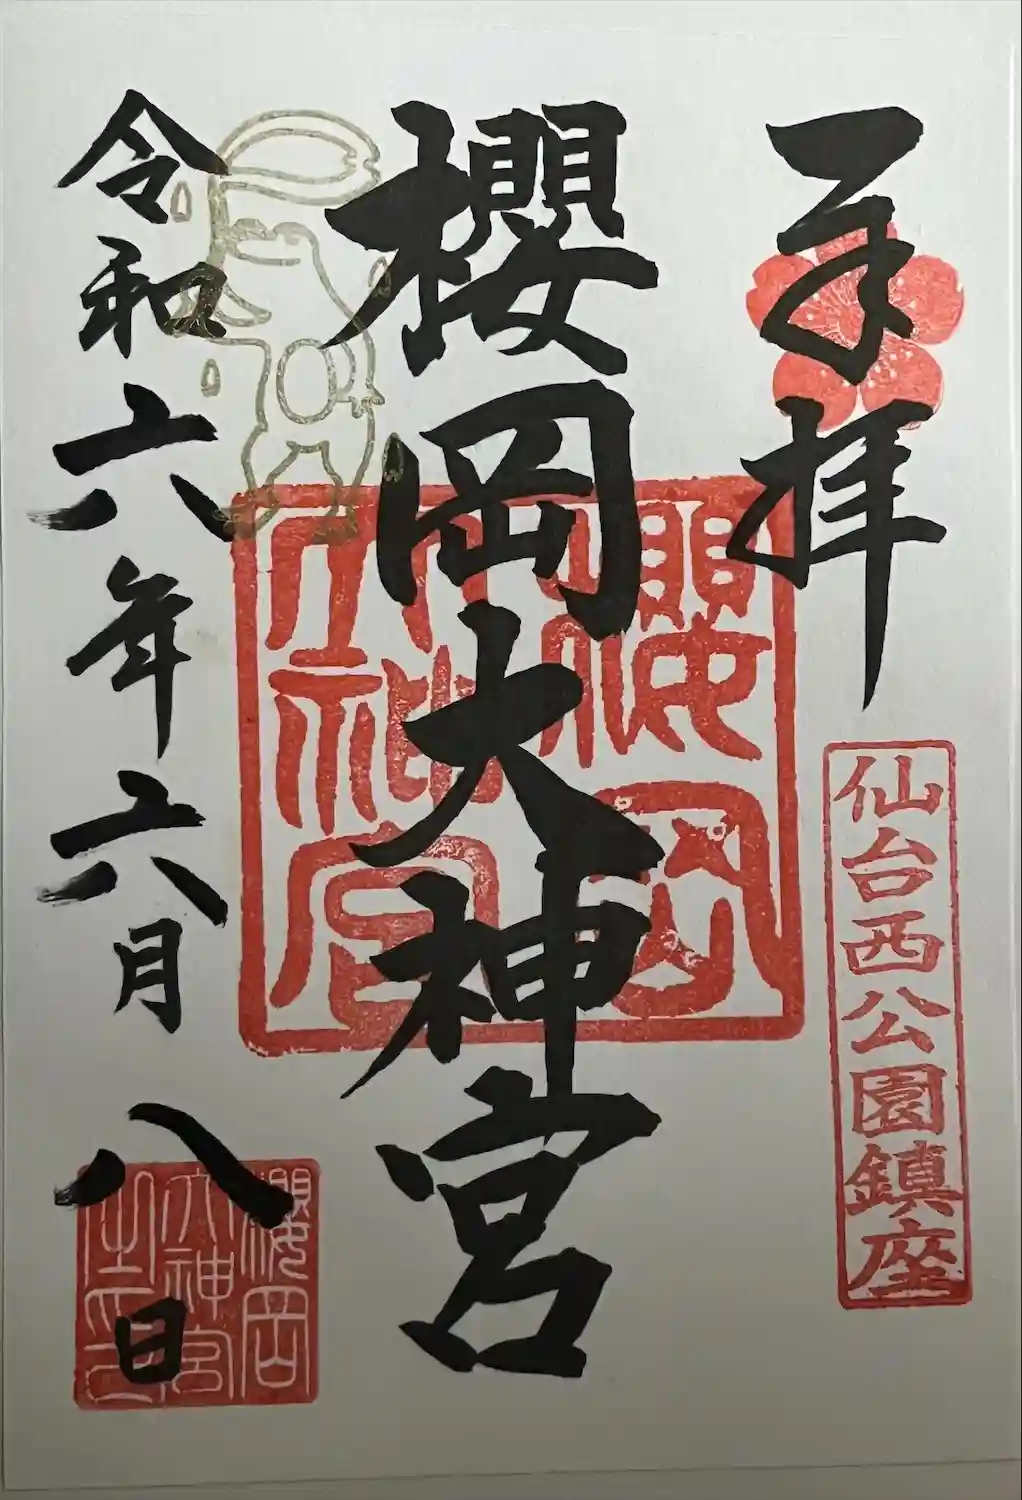 奉拝
仙台西公園鎮座
櫻岡大神宮
令和六年六月八日
櫻岡
大神宮
之印